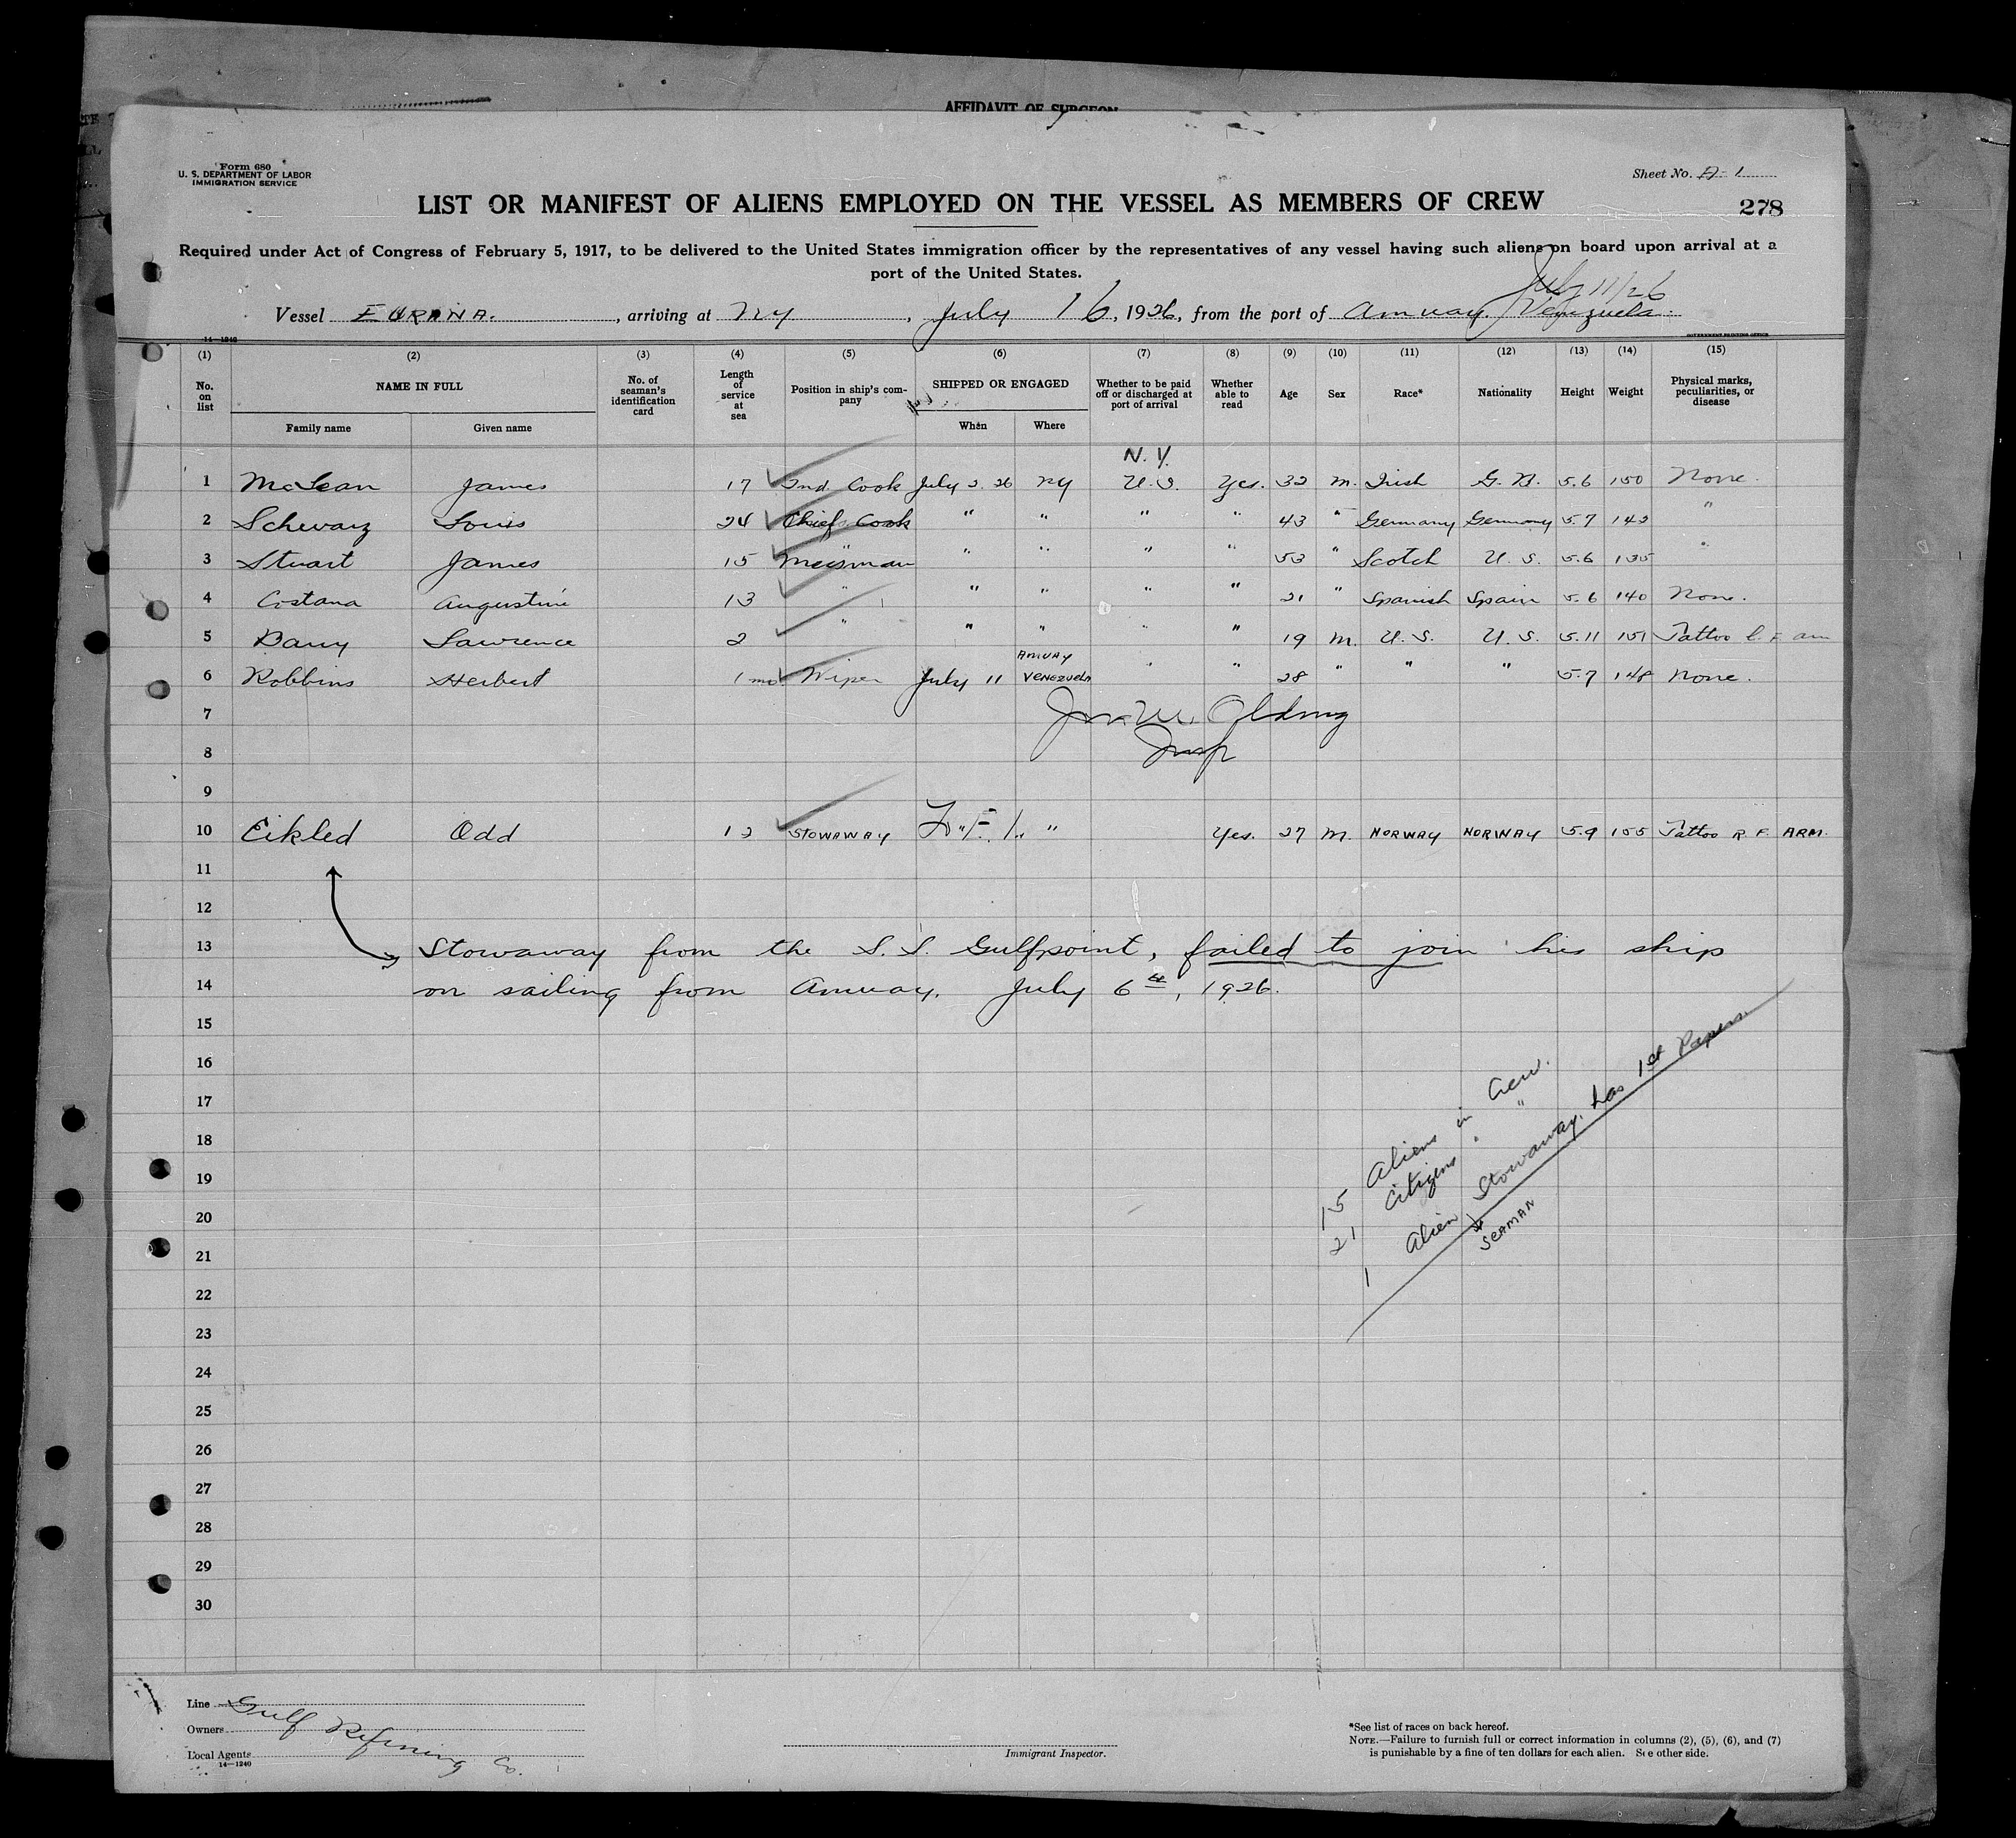 AFFIDAVIT OF SURGEON
Form 680
U. S. DEPARTMENT OF LABOR
IMMIGRATION SERVICE
Sheet No. A-1
LIST OR MANIFEST OF ALIENS EMPLOYED ON THE VESSEL AS MEMBERS OF CREW
278
Required under Act of Congress of February 5, 1917, to be delivered to the United States immigration officer by the representatives of any vessel having such aliens on board upon arrival at a
port of the United States.
July 11/26
Vessel EURANA., arriving at NY, July 16, 1926, from the port of Amuay. Venezuela.
14—1240
GOVERNMENT PRINTING OFFICE
(1) (2) (3) (4) (5) (6) (7) (8) (9) (10) (11) (12) (13) (14) (15)
No. on list
NAME IN FULL
Family name
Given name
No. of seaman's identification card
Length of service at sea
Position in ship's company
SHIPPED OR ENGAGED
When
Where
Whether to be paid off or discharged at port of arrival
Whether able to read
Age
Sex
Race*
Nationality
Height
Weight
Physical marks, peculiarities, or disease
N.Y.
1 McLean James 17 2nd. Cook July 2. 26 NY U.S. Yes. 32 M. Irish G. B. 5.6 150 None.
2 Schwarz Louis 24 Chief Cook " " " " 43 " Germany Germany 5.7 142 "
3 Stuart James 15 Messman " " " " 53 " Scotch U. S. 5.6 135 "
4 Costana Augustine 13 " " " " " 21 " Spanish Spain 5.6 140 None.
5 Barry Lawrence 2 " " " " " 19 M. U. S. U. S. 5.11 151 Tattoo L. F. arm
6 Robbins Herbert 1 mo. Wiper July 11 AMUAY VENEZUELA " " 28 " " " 5.7 148 None.
7 Olding
8 Insp
9
10 Eikled Odd 12 STOWAWAY " Yes. 27 M. NORWAY NORWAY 5.9 155 Tattoo R. F. ARM.
11
12
13 Stowaway from the S.S. Gulfpoint, failed to join his ship
14 on sailing from Amuay. July 6th, 1926.
15
16
17
18
19
20
21
22
23
24
25
26
27
28
29
30
15 Aliens in Crew.
21 Citizens " "
1 Alien Stowaway, has 1st Papers
SEAMAN
Line Gulf Refining Co.
Owners
Local Agents
14—1240
Immigrant Inspector.
*See list of races on back hereof.
NOTE.—Failure to furnish full or correct information in columns (2), (5), (6), and (7)
is punishable by a fine of ten dollars for each alien. See other side.